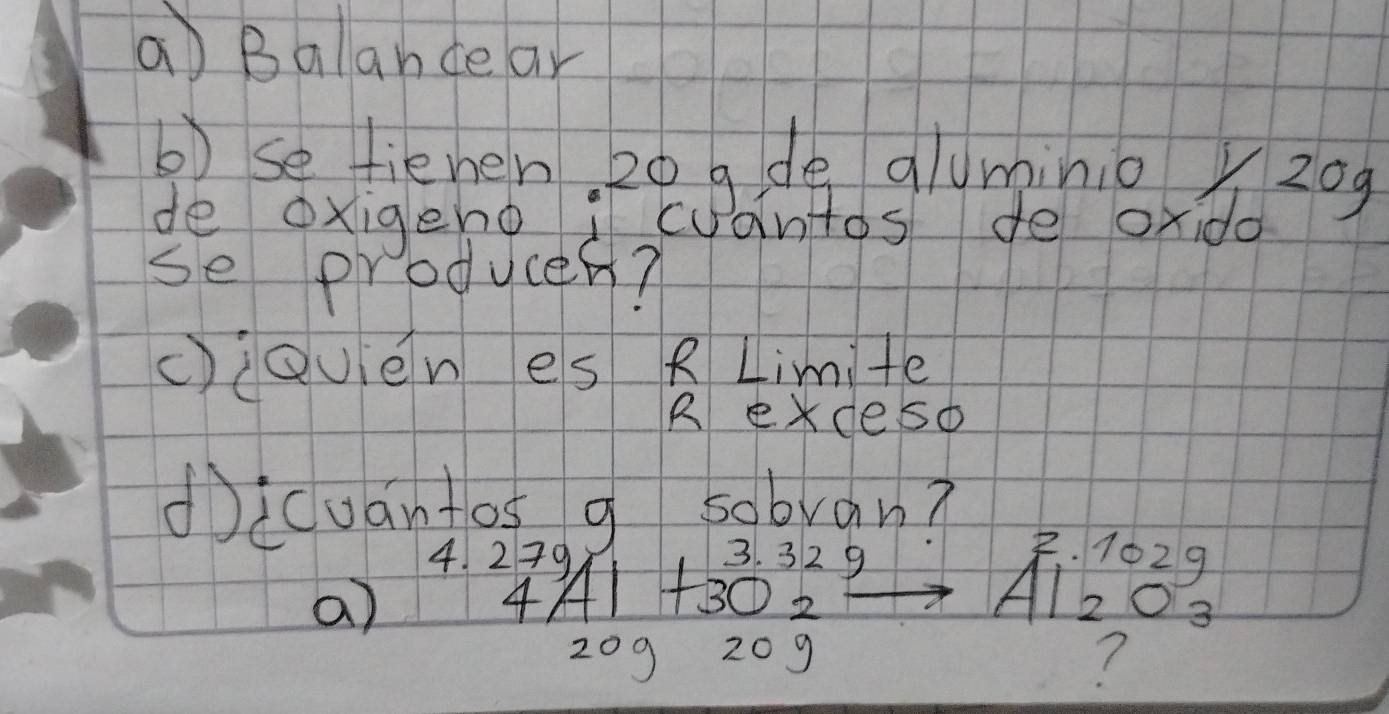 a) Balancear
b) se tienen 20 g de aluminio y 20g
de oxigeno ¿ cuántos de oxido
se producen?
c) ¿Quién es R Limite
R exceso
d) ¿cuántos g sobran?
4.27g 3.32g 2.102g
a) 4Al + 3O2 → Al2O3
20g 20g ?